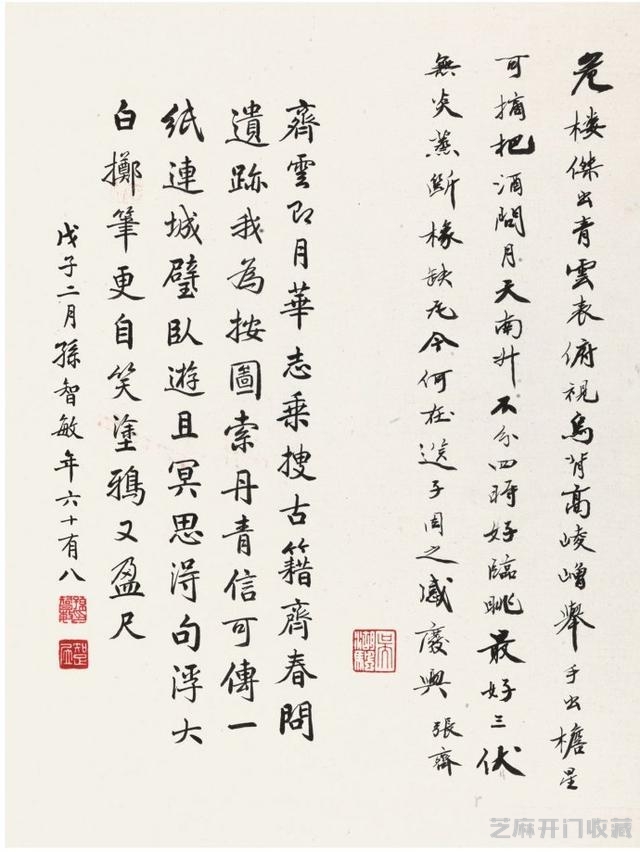 危楼傑出青雲表俯視鳥背高崚嶒舉手出檐星
可摘把酒問月天南升不分四時好臨眺最好三伏
無炎蒸斷椽缺瓦今何在送子因之感廢興 張齊
齊雲即月華志乘搜古籍齊春問
遺跡我為按圖索丹青信可傳一
紙連城璧臥遊且冥思得句浮大
白擲筆更自笑塗鴉又盈尺
戊子二月孫智敏年六十有八
芝麻开门收藏